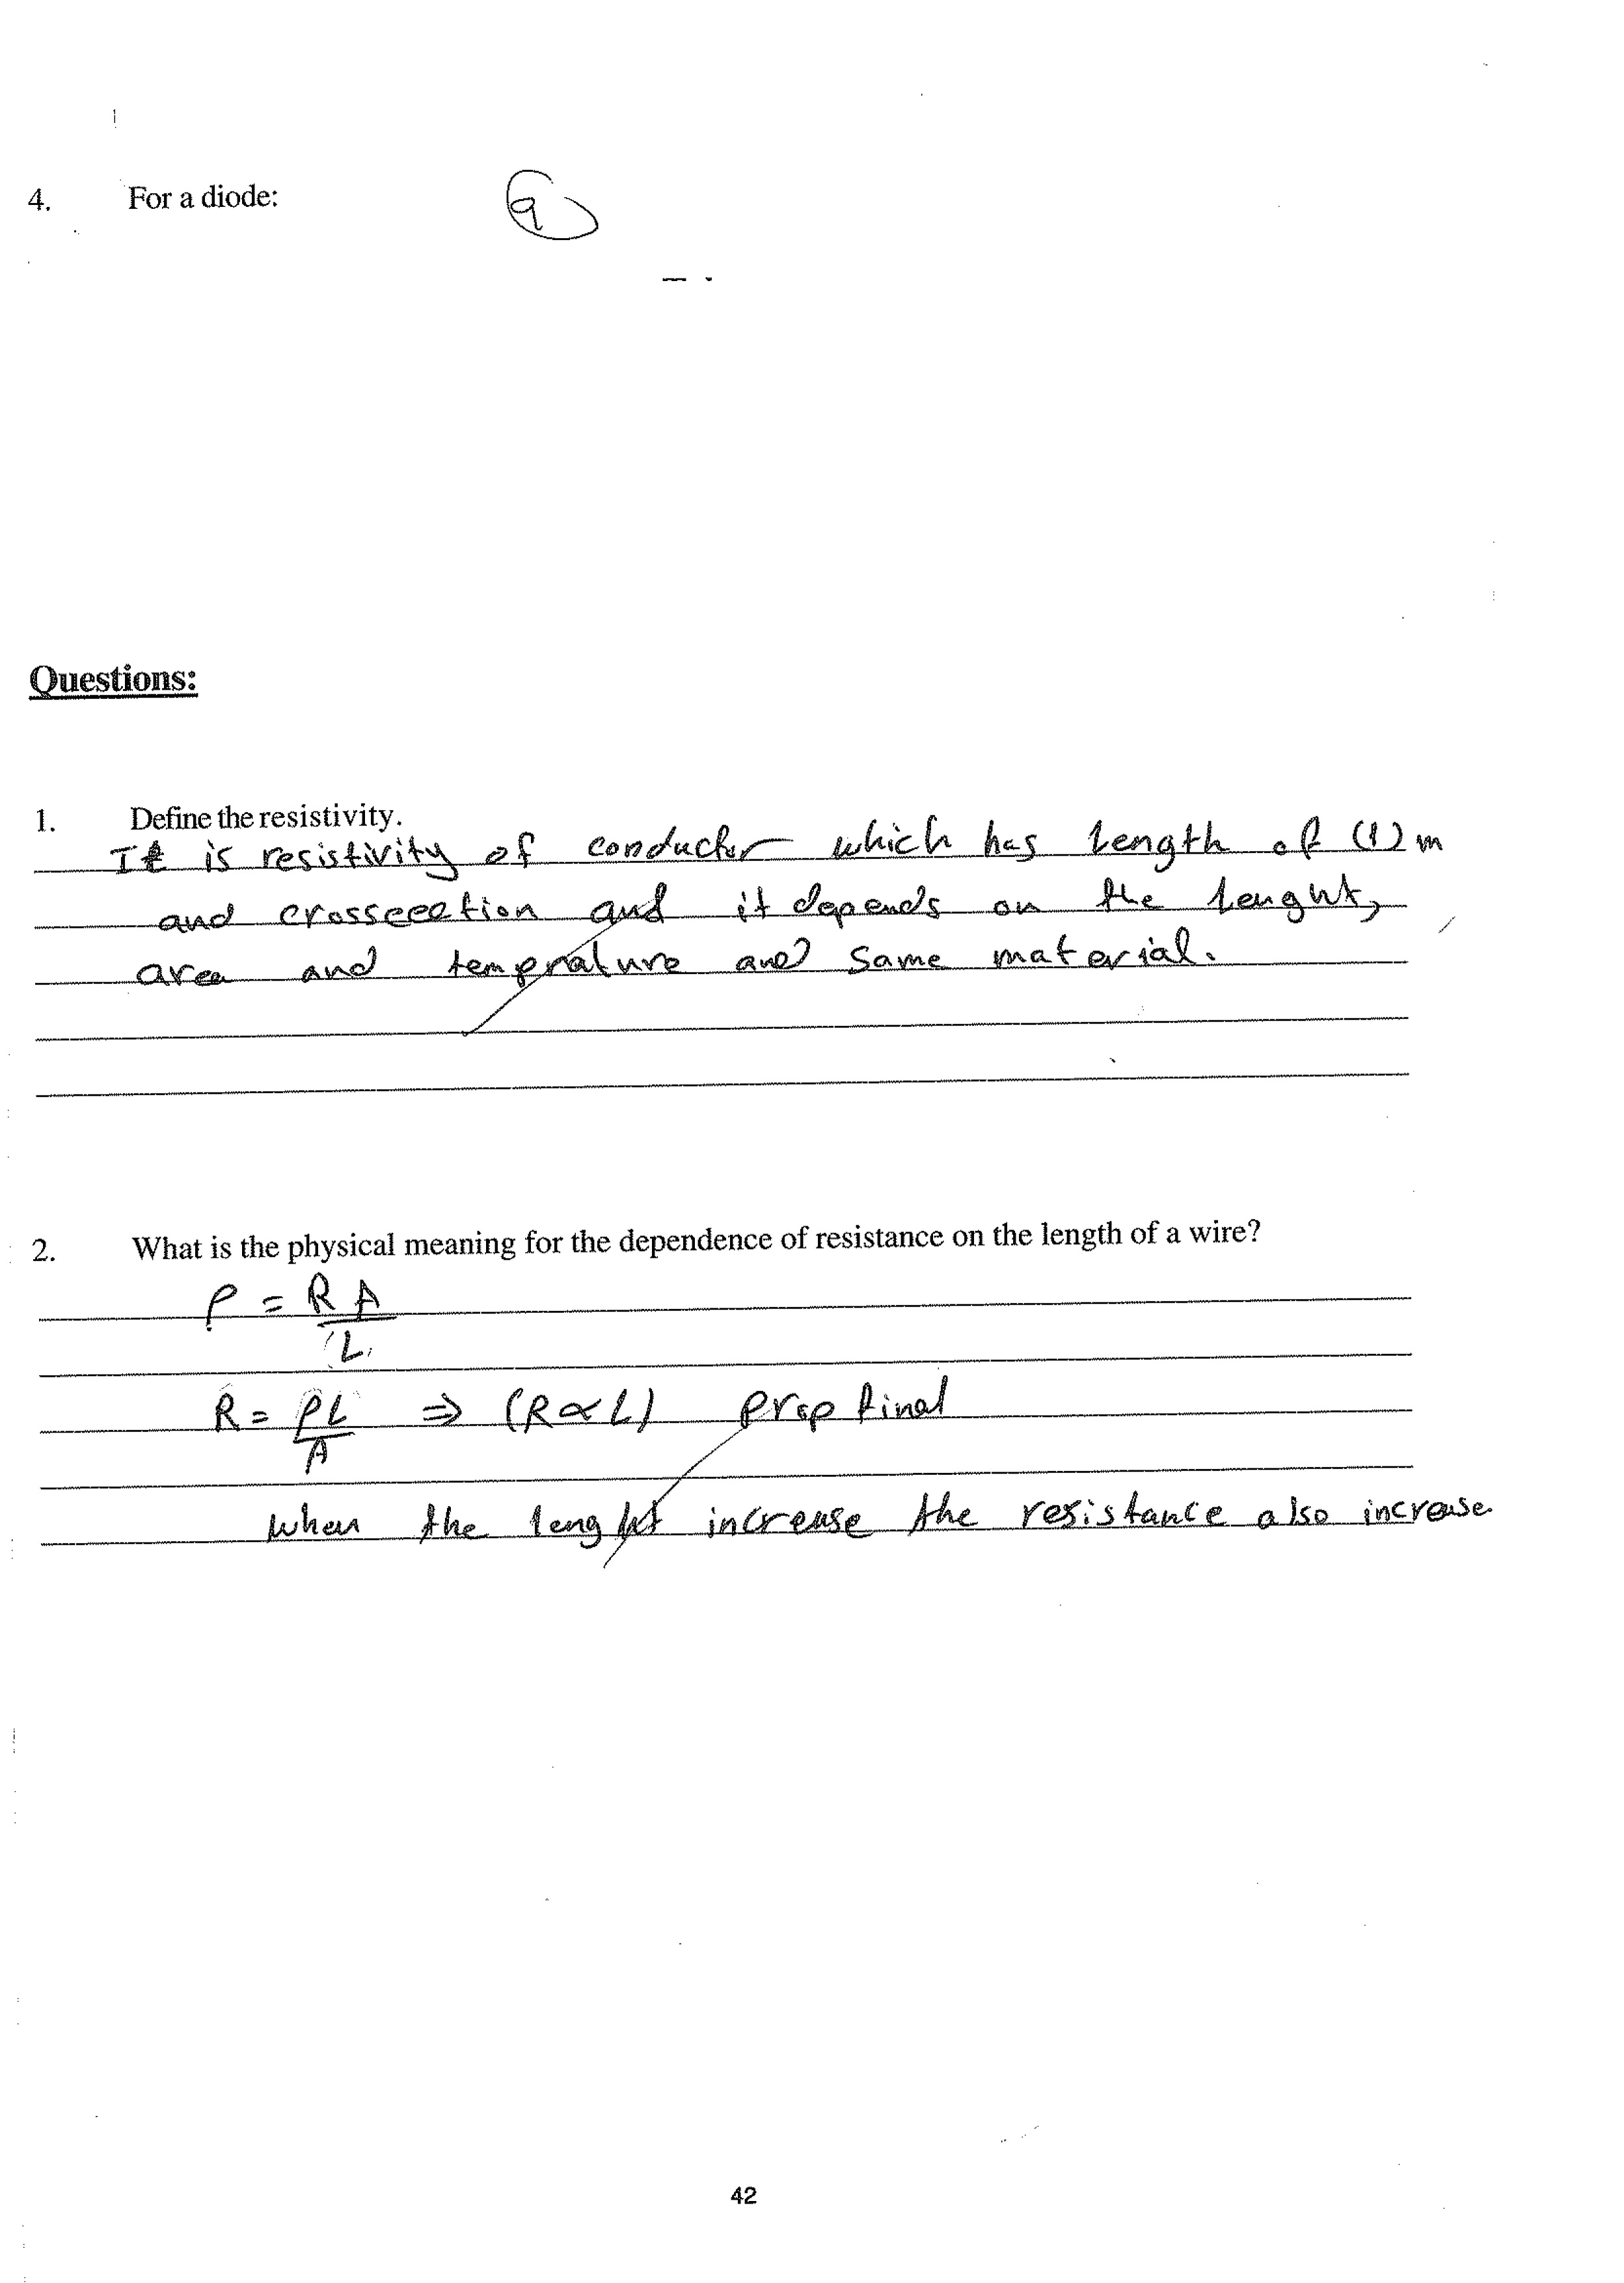 4. For a diode:
9
Questions:
1. Define the resistivity.
It is resistivity of conductor which has length of (1) m
and crosseection and it depends on the lenght,
area and temprature and same material.
2. What is the physical meaning for the dependence of resistance on the length of a wire?
ρ = RA
L
R = ρL ⇒ (R ∝ L) proptinal
A
when the lenght increase the resistance also increase
42